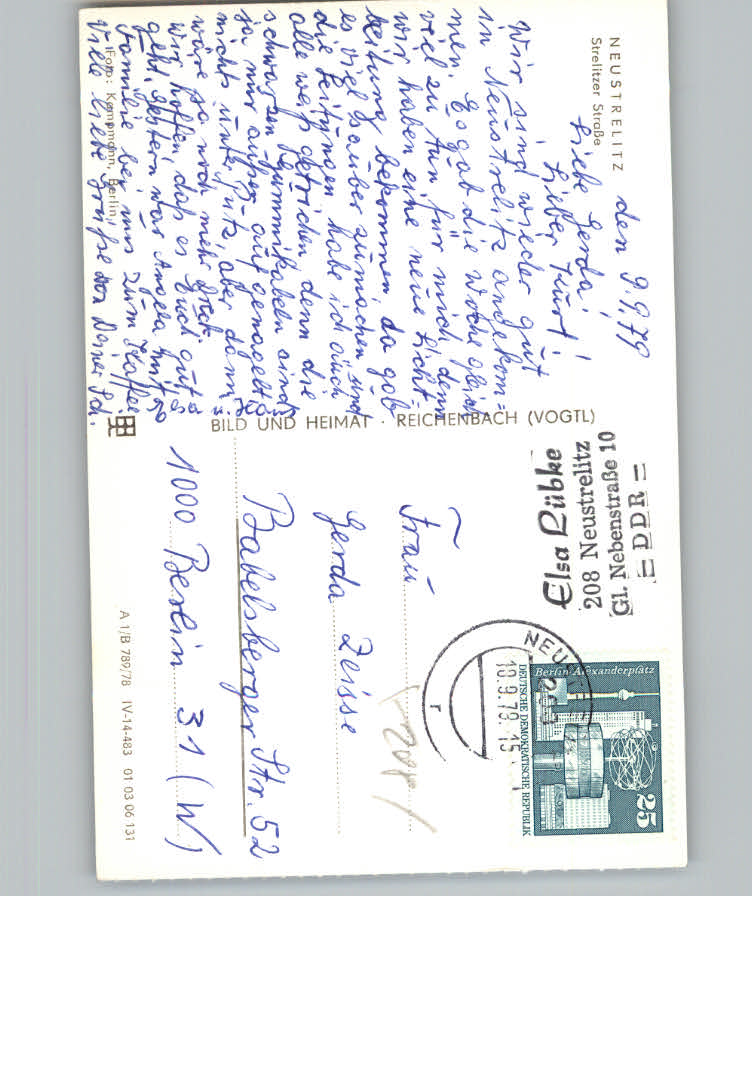 NEUSTRELITZ
Strelitzer Straße
den 9.9.79
Liebe Gerda!
Lieber Kurt!
Wir sind wieder gut
in Neustrelitz angekom=
men. Es gab die Woche gleich
viel zu tun für mich, denn
wir haben eine neue Licht=
leitung bekommen, da gab
es viel sauber zu machen und
die Leitungen habe ich auch
alle weiß gestrichen denn die
schwarzen Gummikabeln sind
ja nur außen aufgenagelt
nichts unter Putz, aber dann
wäre ja noch mehr Dreck.
Wir hoffen, daß es Euch gut
geht. Gestern war Angela
Familie bei uns zum Kaffee.
Viele liebe Grüße von Deiner Sch.
Foto: Kampmann, Berlin
BILD UND HEIMAT · REICHENBACH (VOGTL)
Elsa Lübke
208 Neustrelitz
Gl. Nebenstraße 10
= DDR =
Berlin-Alexanderplatz
DEUTSCHE DEMOKRATISCHE REPUBLIK
25
10.9.79.15
r
Frau
Gerda Zeisse
Babelsberger Str. 52
1000 Berlin 31 (W)
A 1/B 789/78 IV-14-483 01 03 06 131